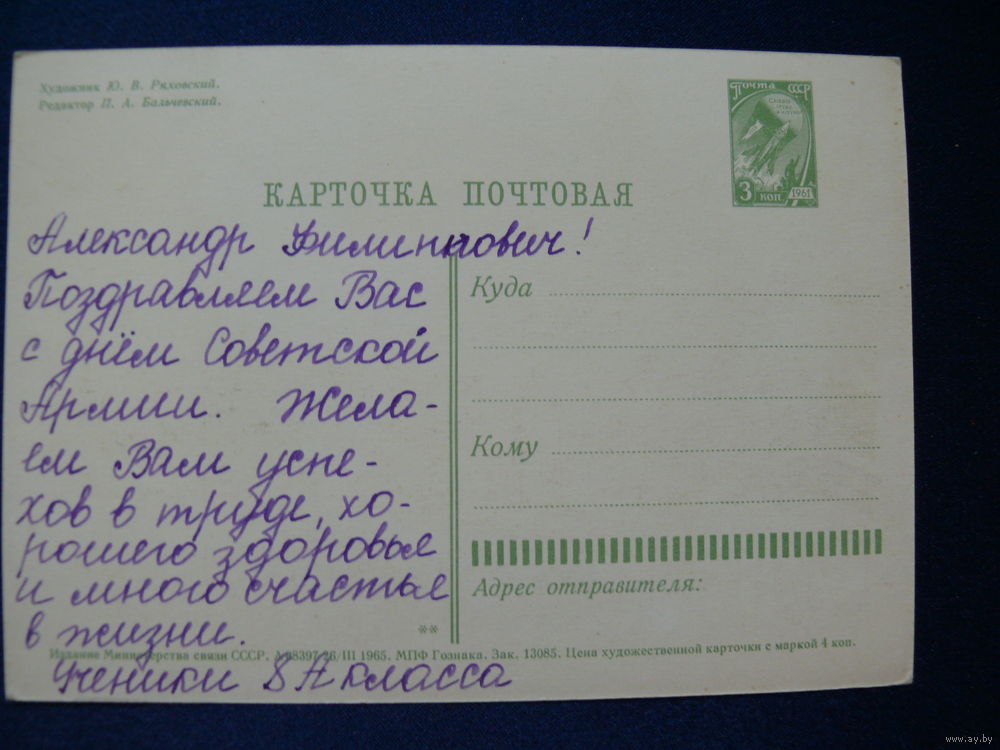 Художник Ю. В. Ряховский.
Редактор П. А. Бальчевский.
Почта СССР
3 коп
1961
КАРТОЧКА ПОЧТОВАЯ
Александр Филиппович!
Поздравляем Вас
с днём Советской
Армии. Жела-
ем Вам успе-
хов в труде, хо-
рошего здоровья
и много счастья
в жизни.
Ученики 8 А класса
Куда
Кому
Адрес отправителя:
**
Издание Министерства связи СССР. А08397 26/III 1965. МПФ Гознака. Зак. 13085. Цена художественной карточки с маркой 4 коп.
www.ay.by